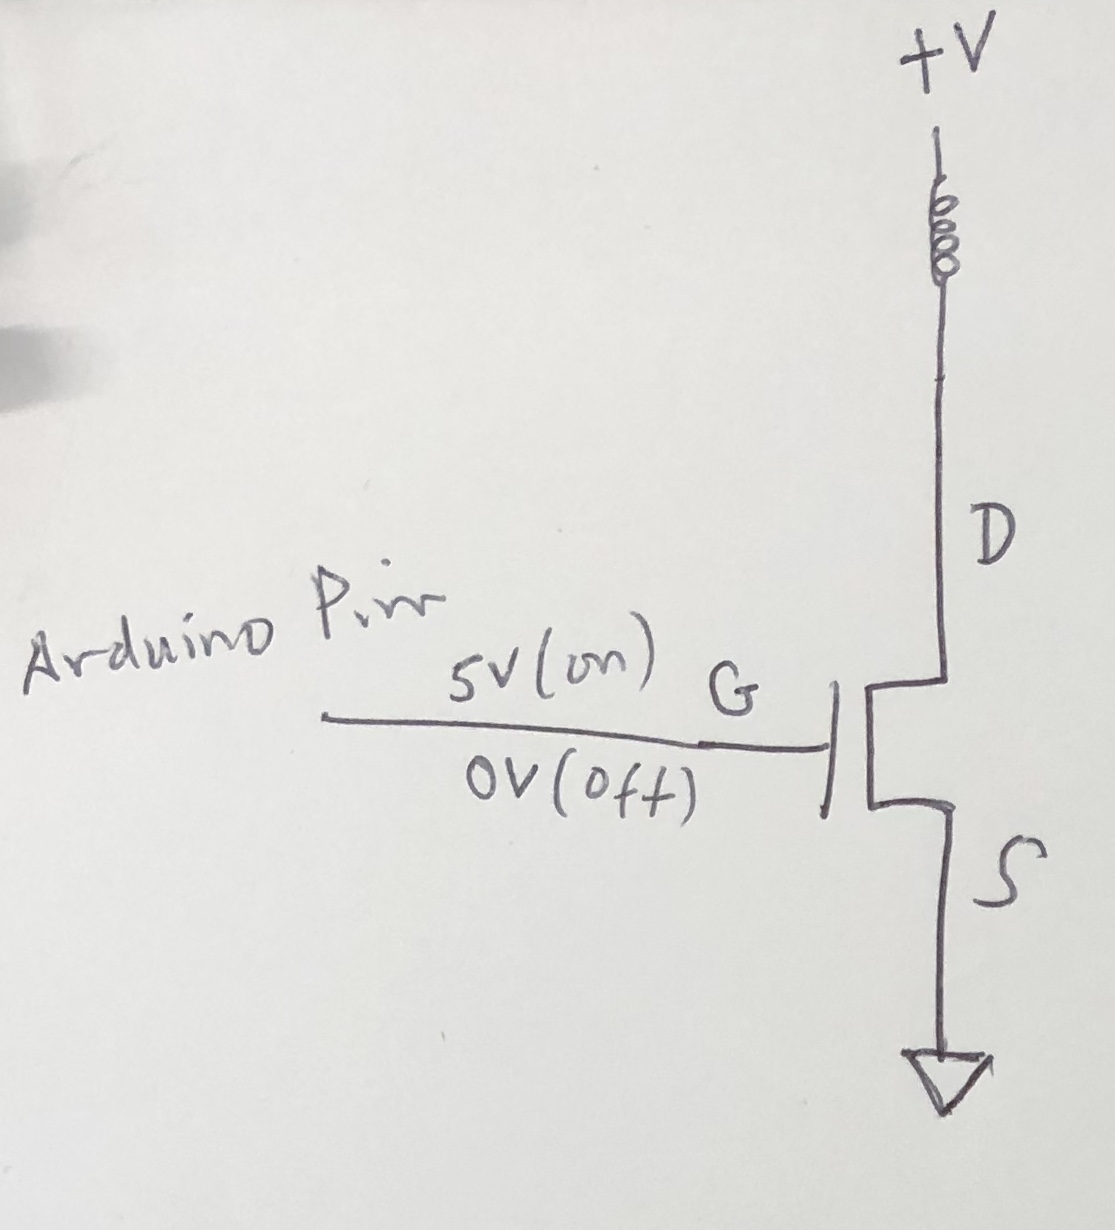 +V
D
Arduino Pin
5V(on)
G
0V(Off)
S